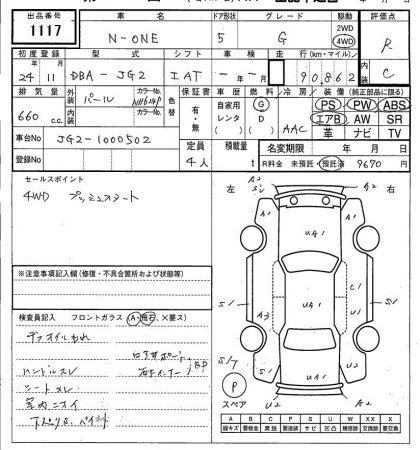 出品番号 車名 ドア形状 グレード 駆動 評価点
1117 N-ONE 5 G 2WD 4WD R
初度登録 型式 シフト 車検 走行(km・マイル) 内装
24 11 DBA-JG2 IAT - 年 - 月 90862 C
排気量 外装 カラーNo. 色替 保証書 車歴 燃料 冷房 装備(純正部品に限る)
660 c.c. パール NH624P 有・無 自家用 レンタ G D AAC PS PW ABS
内装 カラーNo. エアB AW SR
革 ナビ TV
車台No JG2-1000502 定員 積載量 名変期限 年 月 日
登録No 4人 t R料金 未預託・預託済 9670 円
セールスポイント 左 右
4WD プッシュスタート
A2 A2
S1 A1
UA1
A1
UA1
S1 A3 S1
UA1
S/7 U2
P
スペア U2 A2
※注意事項記入欄(修復・不具合箇所および状態等)
検査員記入 フロントガラス(A・飛石、×要ス)
デフオイルもれ
ハンドルスレ
シートスレ
室内ニオイ
下廻りS、ペイント
A B C P S U W X XX
線キズ 要板金 腐蝕 要塗装 サビ 凹凸 補修跡 要交換 交換